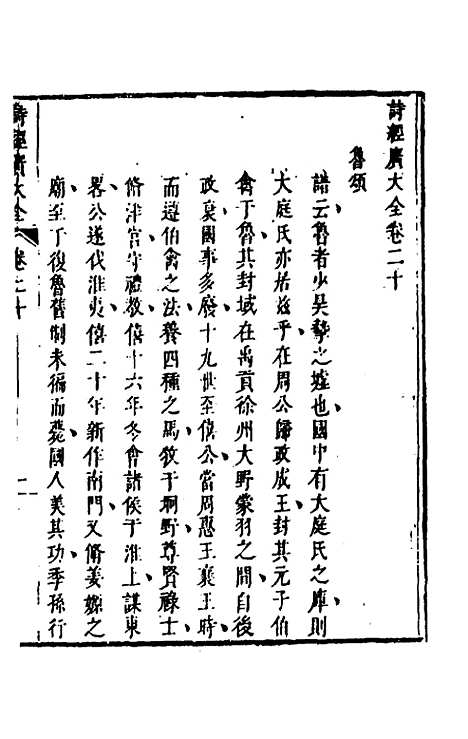 詩經廣大全卷二十
魯頌
譜云魯者少昊摯之墟也國中有大庭氏之庫則
大庭氏亦居兹乎在周公歸政成王封其元子伯
禽于魯其封域在禹貢徐州大野蒙羽之間自後
政衰國事多廢十九世至僖公當周惠王襄王時
而遵伯禽之法養四種之馬牧于坰野尊賢祿士
脩泮宮守禮教僖十六年冬會諸侯于淮上謀東
畧公遂伐淮夷僖二十年新作南門又脩姜嫄之
廟至于復魯舊制未徧而薨國人美其功季孫行
詩經廣大全 卷二十 一